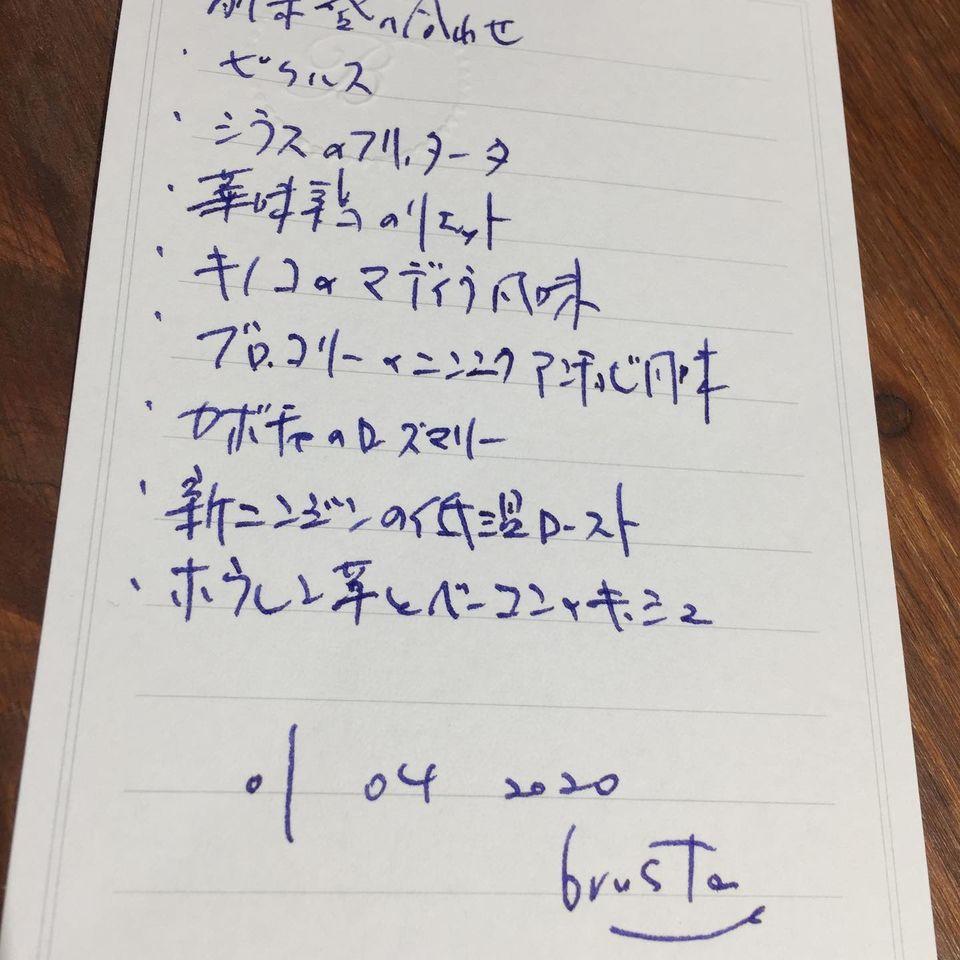 前菜盛り合わせ
・ピクルス
・シラスのフリッタータ
・華味鶏のリエット
・キノコのマディラ風味
・ブロッコリーのニンニクアンチョビ風味
・カボチャのローズマリー
・新ニンジンの低温ロースト
・ホウレン草とベーコンのキッシュ
01 04 2020
brusTa